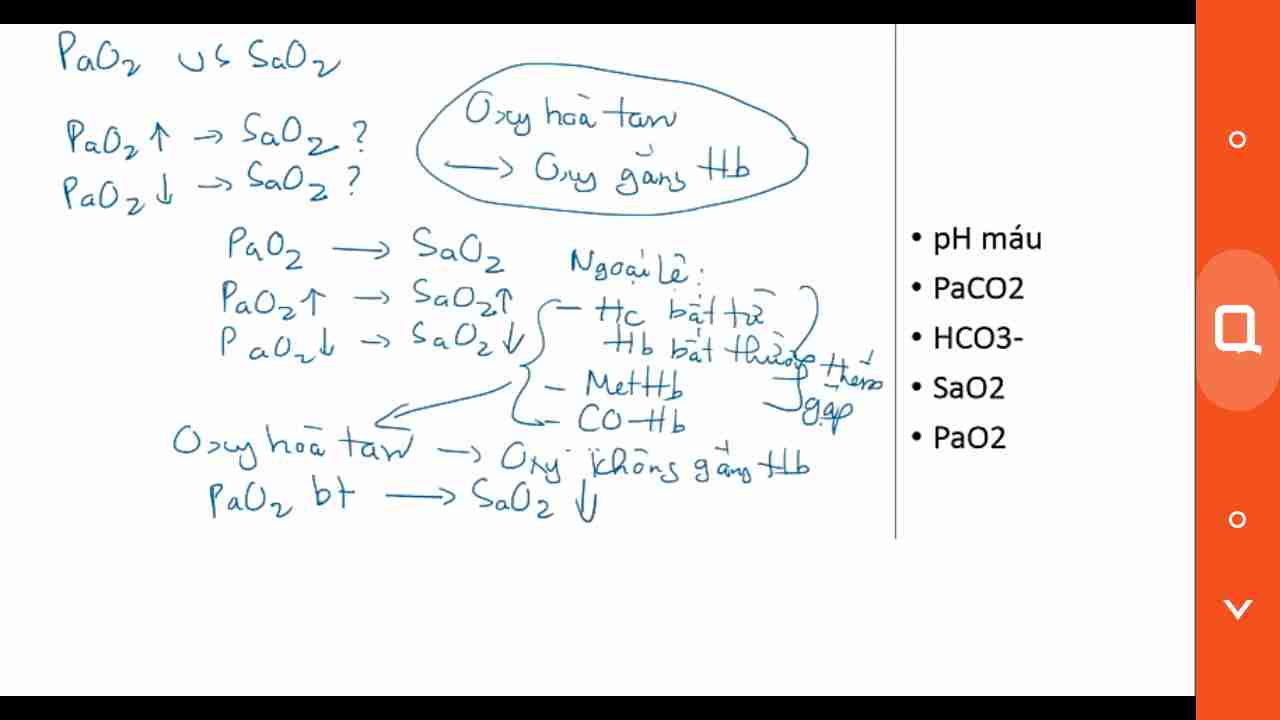 PaO2 vs SaO2
PaO2 ↑ → SaO2 ?
PaO2 ↓ → SaO2 ?
Oxy hoà tan
→ Oxy gắng Hb
PaO2 → SaO2
PaO2 ↑ → SaO2 ↑
PaO2 ↓ → SaO2 ↓
Ngoại lệ:
- Hc bất
Hb bất thường
- MetHb
- CO-Hb
gặp
Oxy hoà tan → Oxy không gắng Hb
PaO2 bt → SaO2 ↓
• pH máu
• PaCO2
• HCO3-
• SaO2
• PaO2